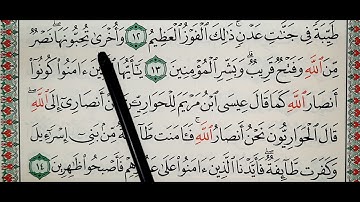 طَيِّبَةً فِي جَنَّٰتِ عَدْنٍ ۚ ذَٰلِكَ ٱلْفَوْزُ ٱلْعَظِيمُ ١٢ وَأُخْرَىٰ تُحِبُّونَهَا ۖ نَصْرٌ
مِّنَ ٱللَّهِ وَفَتْحٌ قَرِيبٌ ۗ وَبَشِّرِ ٱلْمُؤْمِنِينَ ١٣ يَٰٓأَيُّهَا ءَامَنُوا۟ كُونُوٓا۟
أَنصَارَ ٱللَّهِ كَمَا قَالَ عِيسَى ٱبْنُ مَرْيَمَ لِلْحَوَارِيِّـۧنَ مَنْ أَنصَارِىٓ إِلَى ٱللَّهِ ۖ
قَالَ ٱلْحَوَارِيُّونَ نَحْنُ أَنصَارُ ٱللَّهِ ۖ فَـَٔامَنَت طَّآئِفَةٌ مِّنۢ بَنِىٓ إِسْرَٰٓءِيلَ
وَكَفَرَت طَّآئِفَةٌ ۖ فَأَيَّدْنَا ٱلَّذِينَ ءَامَنُوا۟ عَلَىٰ فَأَصْبَحُوا۟ ظَٰهِرِينَ ١٤